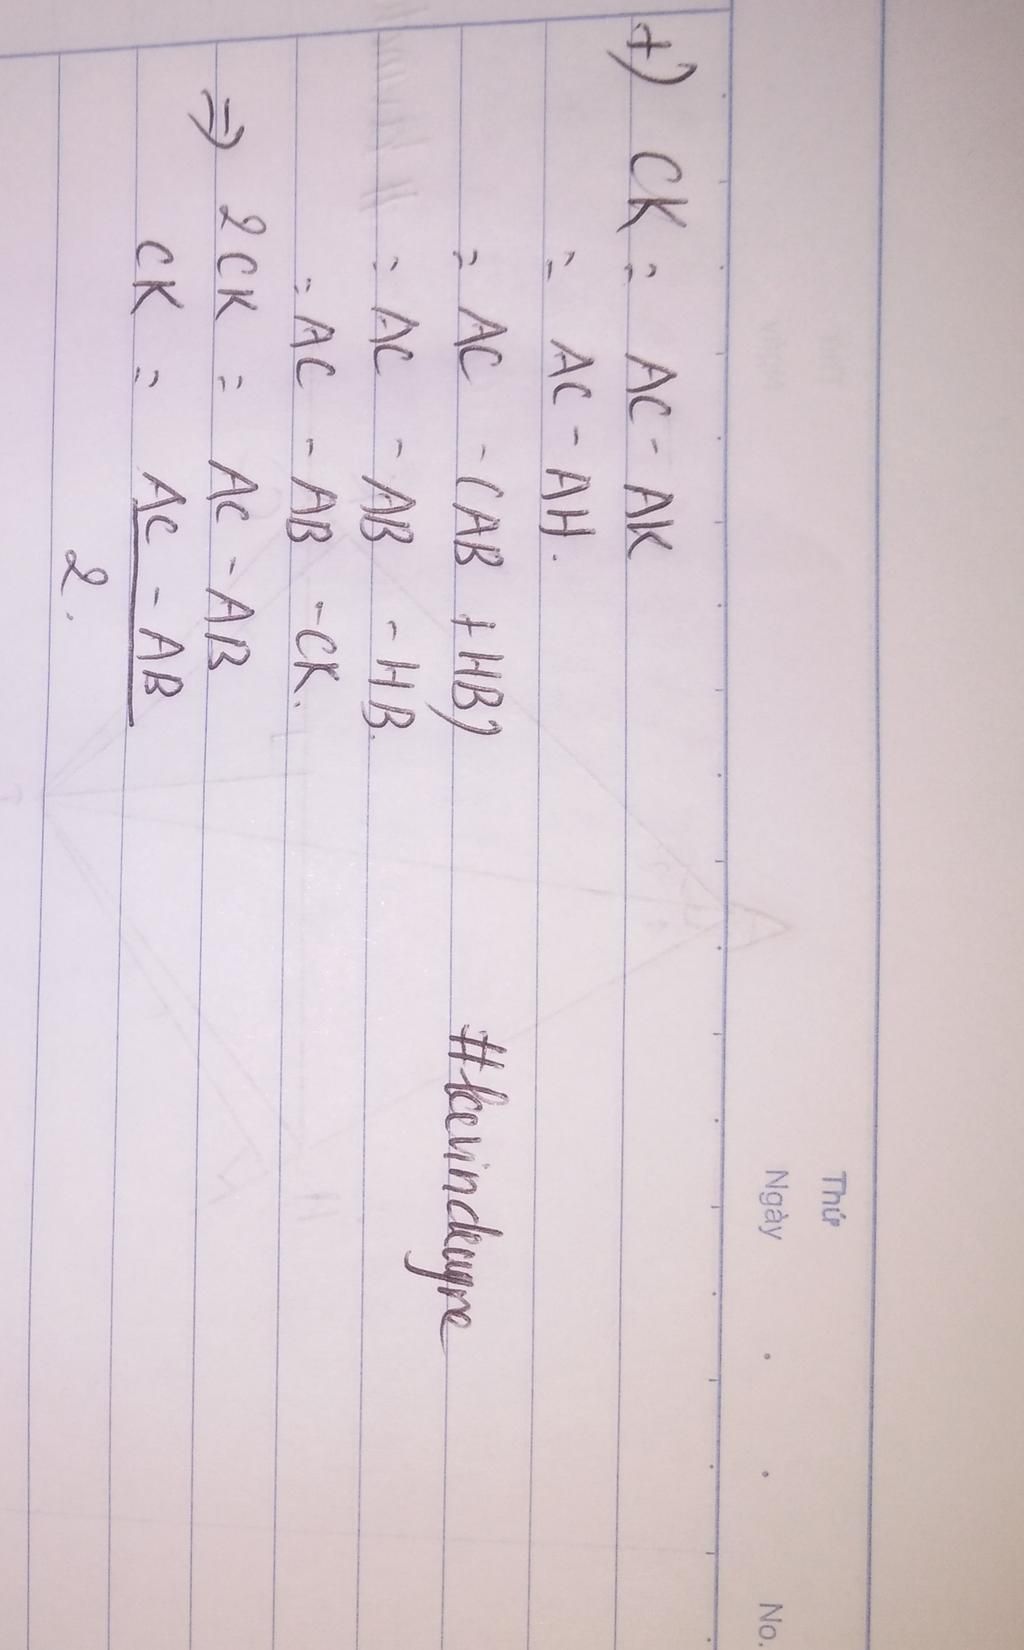 Thứ
Ngày
No.
+) CK = AC - AK
= AC - AH.
= AC - (AB + HB)
= AC - AB - HB.
= AC - AB - CK.
=> 2CK = AC - AB
CK = AC - AB
2.